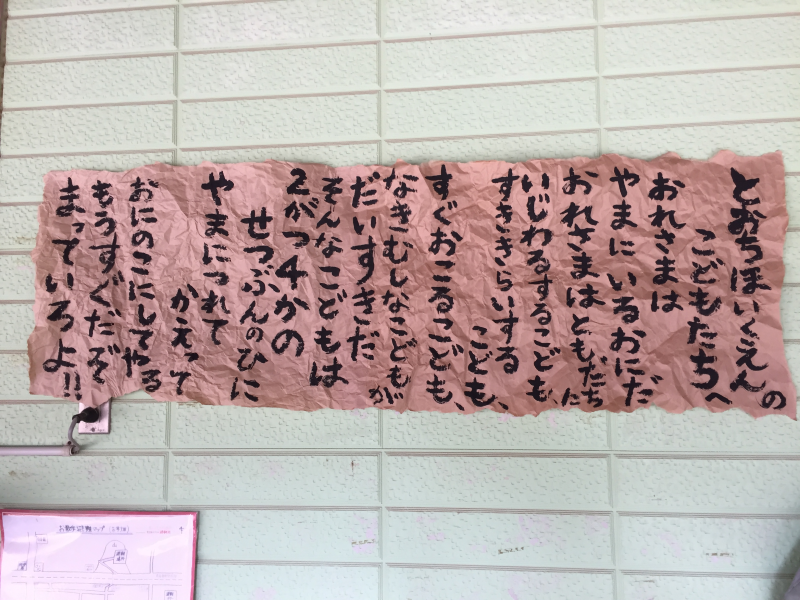 とおちほいくえんの
こどもたちへ
おれさまは
やまに いるおにだ
おれさまはともだちに
いじわるするこども、
すききらいする
こども、
すぐおこるこども、
なきむしなこどもが
だいすきだ
そんなこどもは
2がつ4かの
せつぶんのひに
やまにつれて
かえって
おにのこにしてやる
もうすぐだぞ
まっていろよ!!